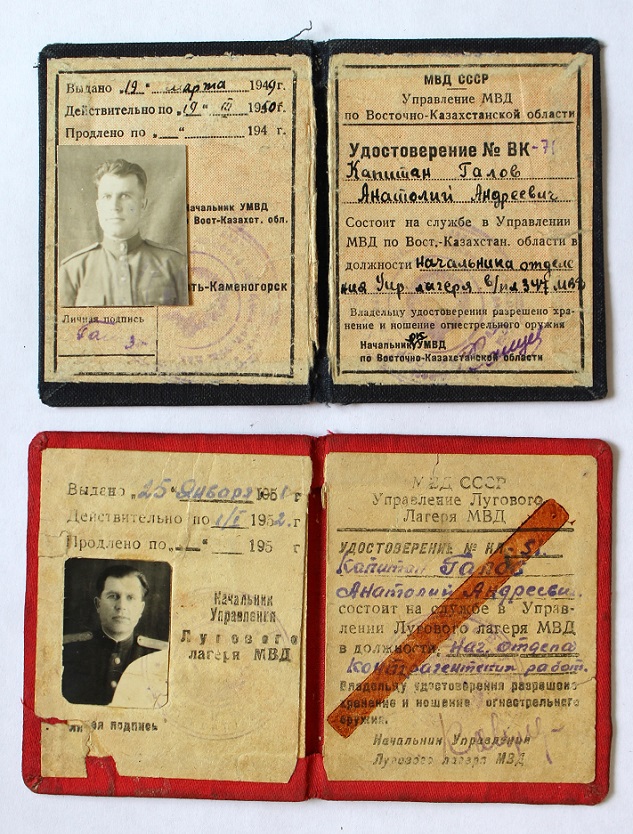 Выдано „19“ марта 1949г.
Действительно по „19“ III 1950г.
Продлено по „ “ 194 г.
Начальник УМВД
Вост-Казахст. обл.
ть-Каменогорск
Личная подпись
МВД СССР
Управление МВД
по Восточно-Казахстанской области
Удостоверение № ВК-71
Капитан Галов
Анатолий Андреевич
Состоит на службе в Управлении
МВД по Вост.-Казахстан. области в
должности начальника отделе
ния Упр. лагеря в/пл 347 МВД
Владельцу удостоверения разрешено хра-
нение и ношение огнестрельного оружия
Начальник УМВД
по Восточно-Казахстанской области
Выдано „25“ Января 195 г
Действительно по 1/I 1952. г
Продлено по „ “ 195 г
Начальник
Управления
Лугового
лагеря МВД
подпись
МВД СССР
Управление Лугового
Лагеря МВД
УДОСТОВЕРЕНИЕ №
Капитан Галов
Анатолий Андреевич
состоит на службе в Управ-
лении Лугового лагеря МВД
в должности нач. отдела
Контрагентских работ.
Владельцу удостоверения разрешено
хранение и ношение огнестрельного
оружия.
Начальник Управления
Лугового лагеря МВД